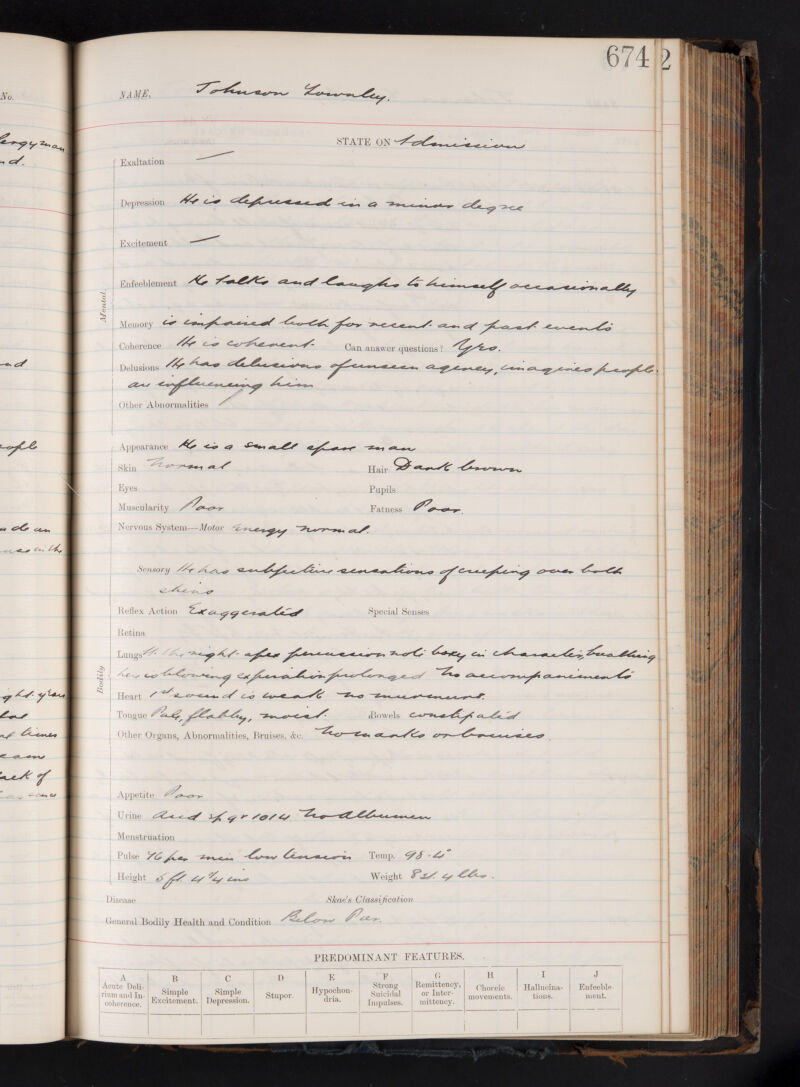 No.
674
2
NAME. Johnson Townley.
STATE ON Admission
Exaltation —
Depression He is depressed in a minor degree
Excitement —
Enfeeblement He talks and laughs to himself occasionally
Mental.
Memory is impaired both for recent and past events
Coherence He is coherent. Can answer questions? Yes.
Delusions He has delusions of unseen agency, imagines people
are influencing him
Other Abnormalities /
Appearance He is a small spare man
Skin Normal Hair Dark brown
Eyes Pupils
Muscularity Poor Fatness Poor.
Nervous System—Motor energy normal.
Sensory He has subjective sensations of creeping over both
shins
Reflex Action Exaggerated Special Senses
Retina
Lungs At the right apex percussion note boxy in character, breathing
here is blowing expiration prolonged No accompaniments
Bodily
Heart 1st sound is weak no murmurs.
Tongue Pale, flabby, moist. Bowels constipated
Other Organs, Abnormalities, Bruises, &c. No marks or bruises.
Appetite Poor
Urine Acid sp gr 1014 No Albumen
Menstruation
Pulse 76 per min low tension Temp. 98.4°
Height 5 ft. 4 3/4 ins Weight 8 st. 4 lbs.
Disease Skae's Classification
General Bodily Health and Condition Below Par.
PREDOMINANT FEATURES.
A B C D E F G H I J
Acute Delirium and Incoherence. Simple Excitement. Simple Depression. Stupor. Hypochondria. Strong Suicidal Impulses. Remittency, or Intermittency. Choreic movements. Hallucinations. Enfeeblement.